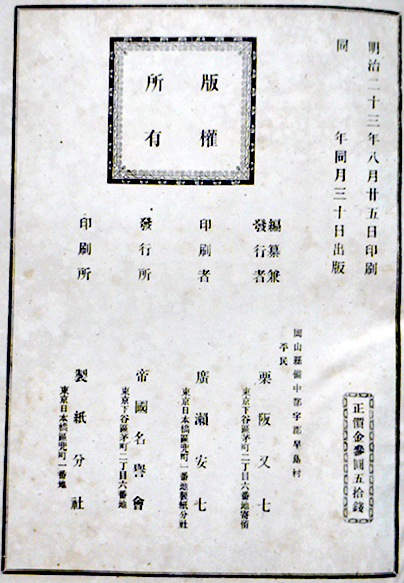 明治二十三年八月廿五日印刷
同年同月三十日出版
版權
所有
正價金參圓五拾錢
編纂兼
發行者
岡山縣備中都宇郡早島村
平民
栗阪又七
東京下谷區茅町二丁目六番地寄留
印刷者
廣瀬安七
東京日本橋區兜町一番地製紙分社
發行所
帝國名譽會
東京下谷區茅町二丁目六番地
印刷所
製紙分社
東京日本橋區兜町一番地